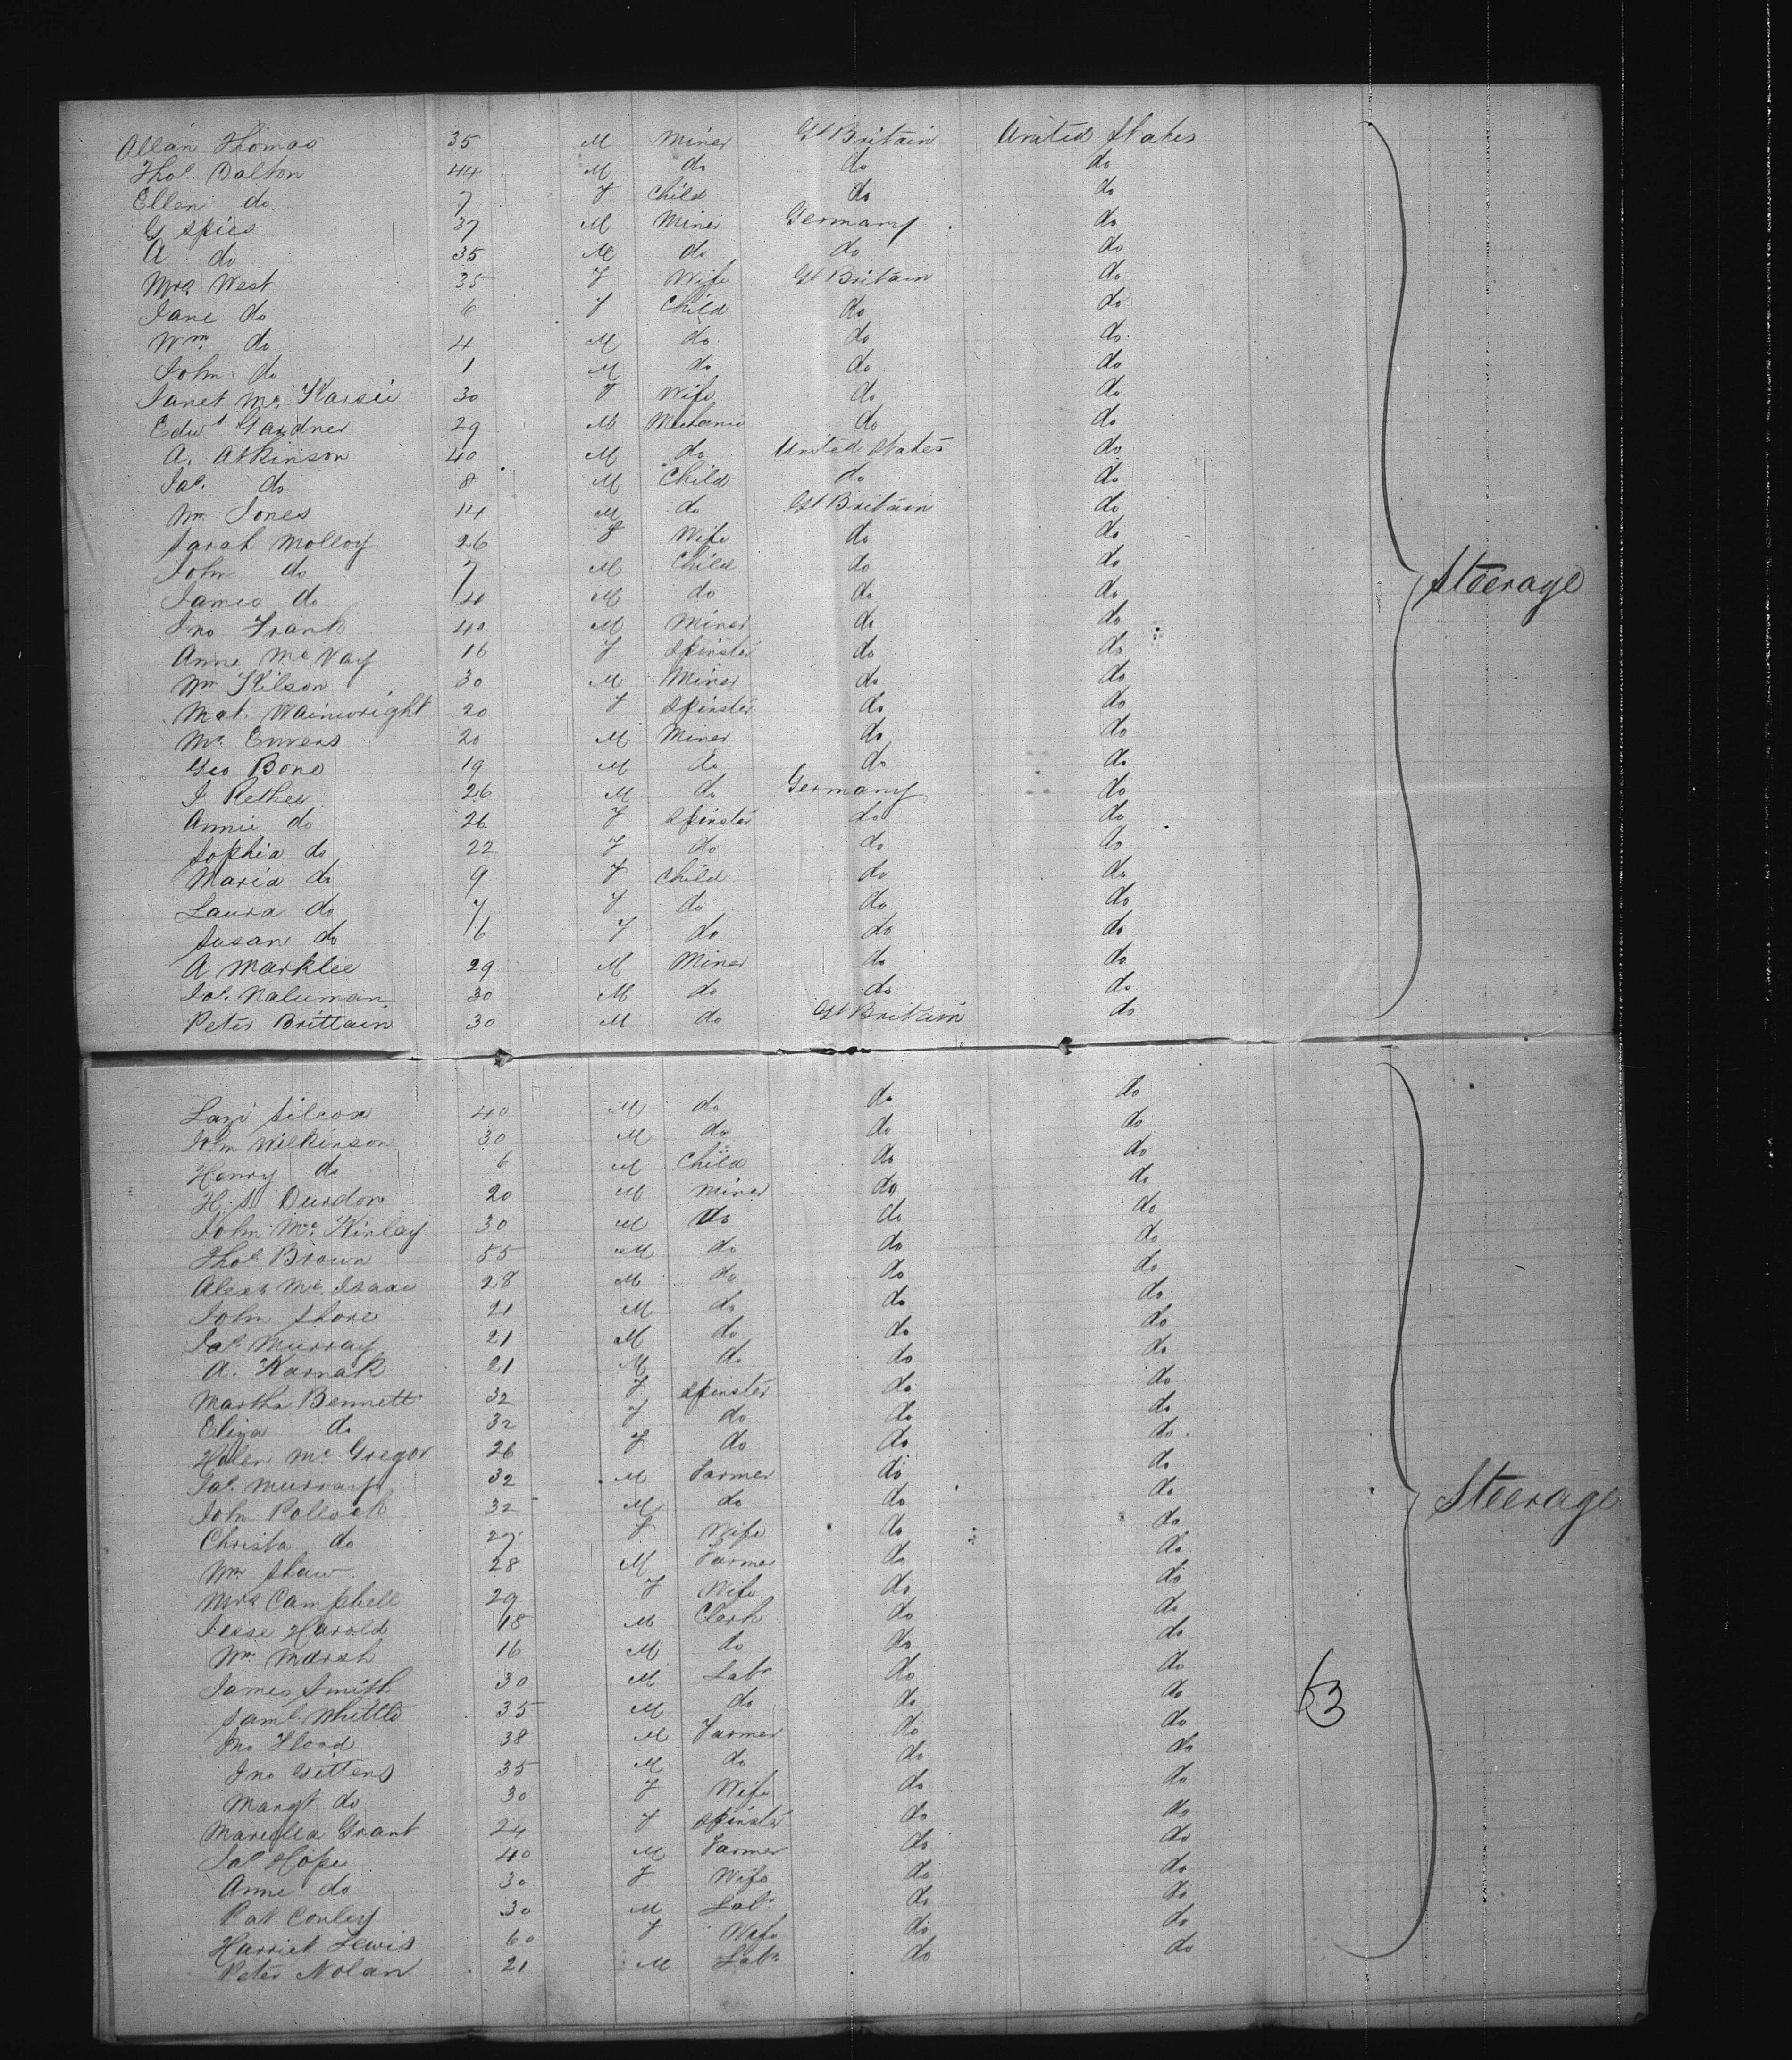 Allan Thomas 35 M Miner Gt Britain United States
Thos. Dalton 44 M do do do
Ellen do 7 F Child do do
G Spies 37 M Miner Germany do
A do 35 M do do do
Mrs West 35 F Wife Gt Britain do
Jane do 6 F Child do do
Wm do 4 M do do do
John do 1 M do do do
Janet Mc 30 F Wife do do
Edwd Gardner 29 M Mechanic do do
A. Atkinson 40 M do United States do
Jas. do 8 M Child do do
Wm Jones 14 M do Gt Britain do
Sarah Molloy 26 F Wife do do
John do 7 M Child do do
Steerage
James do 4 M do do do
Jno Frank 40 M Miner do do
Anne McVay 16 F Spinster do do
Wm Kilson 30 M Miner do do
Mat. Wainwright 20 F Spinster do do
20 M Miner do do
Geo Bone 19 M do do do
J Rethew 26 M do Germany do
Annie do 26 F Spinster do do
Sophia do 22 F do do do
Maria do 9 F Child do do
Laura do 7 F do do do
Susan do 6 F do do do
A Marklee 29 M Miner do do
Jos. Naluman 30 M do do do
Peter Brittain 30 M do Gt Britain do
Silcox 40 M do do do
John Wilkinson 30 M do do do
Henry do 6 M Child do do
H. S. Durdon 20 M Miner do do
John McKinlay 30 M do do do
Thos Brown 55 M do do do
Alexr McIsaac 28 M do do do
John Shore 21 M do do do
Jas. Murray 21 M do do do
A. Karnak 21 M do do do
Martha Bennett 32 F Spinster do do
Eliza do 32 F do do do
Helen McGregor 26 F do do do
Jas. Murray 32 M Farmer do do
John Pollock 32 M do do do
Steerage
Christa do 27 F Wife do do
Wm Shaw 28 M Farmer do do
Mrs Campbell 29 F Wife do do
Jesse Harold 18 M Clerk do do
Wm Marsh 16 M do do do
James Smith 30 M Labr do do
Saml. Whittle 35 M do do do
63
Jno Flood 38 M Farmer do do
Jno Gittens 35 M do do do
Margt do 30 F Wife do do
Mariella Grant 24 F Spinster do do
Jas Hope 40 M Farmer do do
Anne do 30 F Wife do do
Pat Conley 30 M Labr do do
Harriet Lewis 60 F Wife do do
Peter Nolan 21 M Labr do do